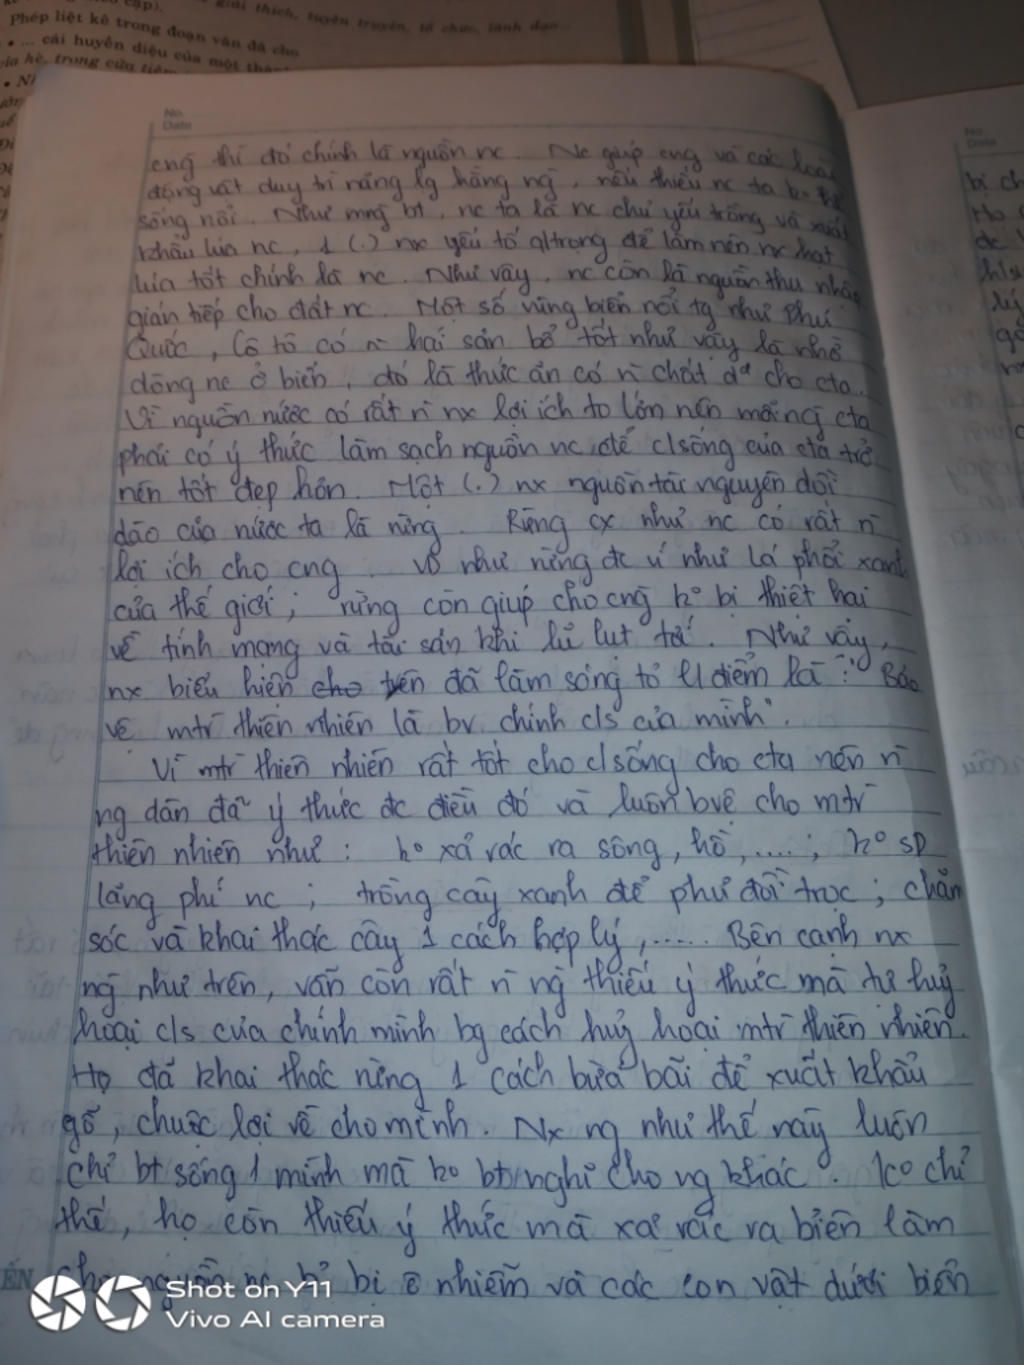 cập).
giải thích, tuyên truyền, tổ chức, lãnh đạo...
Phép liệt kê trong đoạn văn đã cho
• ... cái huyền diệu của một
hè, trong cửa tiệm
No.
Date
cng thì đó chính là nguồn nc. Nc giúp cng và các loài
động vật duy trì năng lg hằng ng, nếu thiếu nc ta ko thể
sống nổi. Như mng bt, nc ta là nc chủ yếu trồng và xuất
khẩu lúa nc, 1 (.) nx yếu tố qtrọng để làm nên nx hạt
lúa tốt chính là nc. Như vậy, nc còn là nguồn thu nhập
gián tiếp cho đất nc. Một số vùng biển nổi tg như Phú
Quốc, Cô tô có n` hải sản bổ tốt như vậy là nhờ
dòng nc ở biển, đó là thức ăn có n` chất d² cho cta.
Vì nguồn nước có rất n` nx lợi ích to lớn nên mỗi ng cta
phải có ý thức làm sạch nguồn nc để c/sống của cta trở
nên tốt đẹp hơn. Một (.) nx nguồn tài nguyên dồi
dào của nước ta là rừng. Rừng cx như nc có rất n`
lợi ích cho cng. Vd như rừng đc ví như lá phổi xanh
của thế giới; rừng còn giúp cho cng ko bị thiệt hại
về tính mạng và tài sản khi lũ lụt tới. Như vậy,
nx biểu hiện cho trên đã làm sáng tỏ l/điểm là: "Bảo
vệ mtr thiên nhiên là bv chính c/s của mình".
Vì mtr thiên nhiên rất tốt cho c/sống cho cta nên n`
ng dân đã ý thức đc điều đó và luôn bvệ cho mtr
thiên nhiên như: ko xả rác ra sông, hồ,....; ko sD
lãng phí nc; trồng cây xanh để phủ đồi trọc; chăm
sóc và khai thác cây 1 cách hợp lý,..... Bên cạnh nx
ng như trên, vẫn còn rất n` ng thiếu ý thức mà tự huỷ
hoại c/s của chính mình bg cách huỷ hoại mtr thiên nhiên.
Họ đã khai thác rừng 1 cách bừa bãi để xuất khẩu
gỗ, chuộc lợi về cho mình. Nx ng như thế này luôn
chỉ bt sống 1 mình mà ko bt nghĩ cho ng khác. Ko chỉ
thế, họ còn thiếu ý thức mà xả rác ra biển làm
cho nguồn nc bị ô nhiễm và các con vật dưới biển
No.
Date
bị
Họ
đc
Shot on Y11
Vivo AI camera